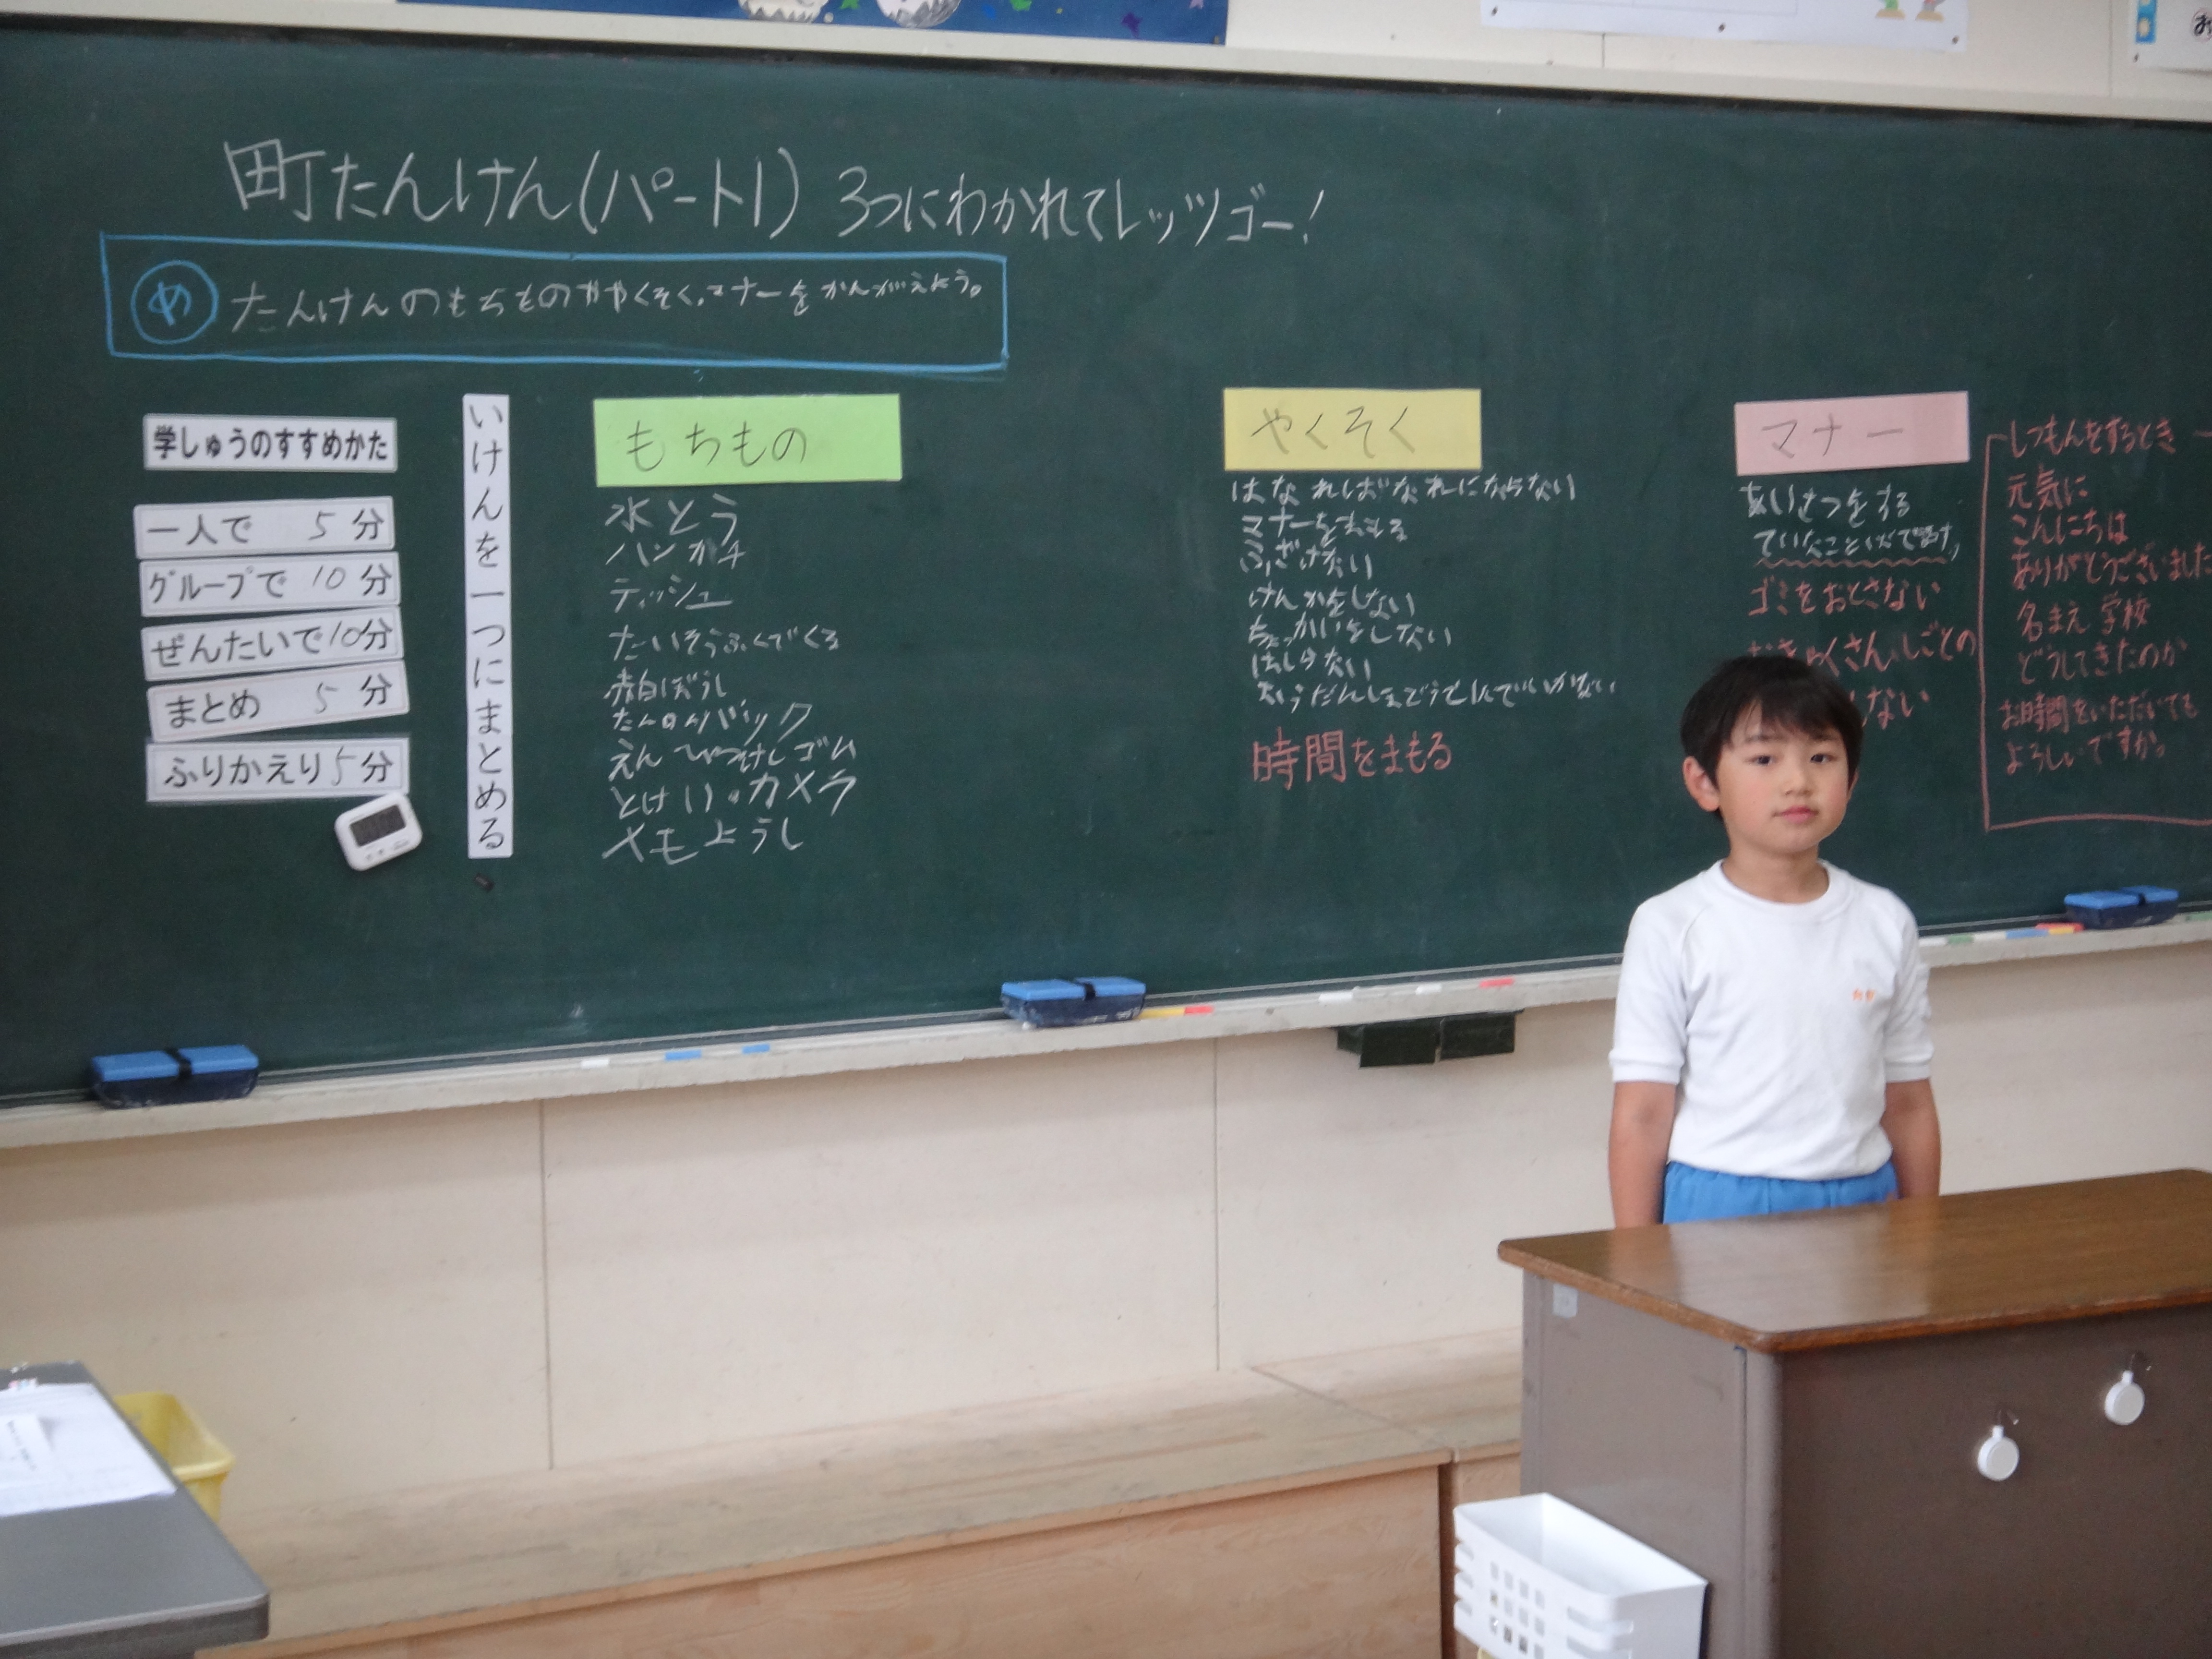 町たんけん(パート1) 3つにわかれてレッツゴー!
め たんけんのもちものややくそく、マナーをかんがえよう。
学しゅうのすすめかた
一人で 5分
グループで 10分
ぜんたいで10分
まとめ 5分
ふりかえり5分
いけんを一つにまとめる
もちもの
水とう
ハンカチ
ティッシュ
たいそうふくでくる
赤白ぼうし
たんけんバック
えんぴつけしゴム
とけい。カメラ
メモようし
やくそく
はなればなれにならない
マナーをまもる
ふざけない
けんかをしない
ちょっかいをしない
はしらない
時間をまもる
マナー
あいさつをする
ていねいなことばで話す
ゴミをおとさない
おきゃくさん、しごとの
しない
しつもんをするとき
元気に
こんにちは
ありがとうございました
名まえ 学校
どうしてきたのか
お時間をいただいても
よろしいですか。